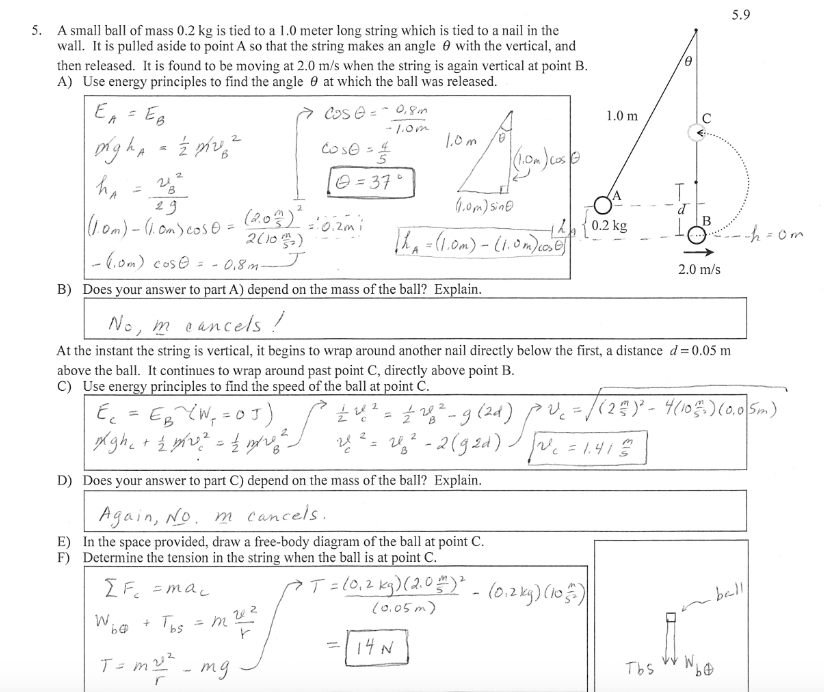 5.9
5. A small ball of mass 0.2 kg is tied to a 1.0 meter long string which is tied to a nail in the
wall. It is pulled aside to point A so that the string makes an angle θ with the vertical, and
then released. It is found to be moving at 2.0 m/s when the string is again vertical at point B.
A) Use energy principles to find the angle θ at which the ball was released.
E_A = E_B
mgh_A = ½ mv_B²
h_A = v_B² / 2g
(1.0m) - (1.0m)cosθ = (2.0 m/s)² / 2(10 m/s²) = 0.2m
-(1.0m) cosθ = -0.8m
cosθ = -0.8m / -1.0m
cosθ = 4/5
θ = 37°
1.0m
θ
(1.0m)cosθ
(1.0m)sinθ
h_A = (1.0m) - (1.0m)cosθ
θ
1.0 m
C
A
h_A
0.2 kg
d
B
h = 0m
2.0 m/s
B) Does your answer to part A) depend on the mass of the ball? Explain.
No, m cancels!
At the instant the string is vertical, it begins to wrap around another nail directly below the first, a distance d = 0.05 m
above the ball. It continues to wrap around past point C, directly above point B.
C) Use energy principles to find the speed of the ball at point C.
E_C = E_B (W_T = 0 J)
mgh_C + ½ mv_C² = ½ mv_B²
½ v_C² = ½ v_B² - g(2d)
v_C² = v_B² - 2(g2d)
v_C = √(2 m/s)² - 4(10 m/s²)(0.05m)
v_C = 1.41 m/s
D) Does your answer to part C) depend on the mass of the ball? Explain.
Again, No. m cancels.
E) In the space provided, draw a free-body diagram of the ball at point C.
F) Determine the tension in the string when the ball is at point C.
ΣF_C = ma_c
W_b⊕ + T_bs = m v²/r
T = m v²/r - mg
T = (0.2 kg)(2.0 m/s)² / (0.05m) - (0.2kg)(10 m/s²)
= 14 N
ball
Tbs
W_b⊕